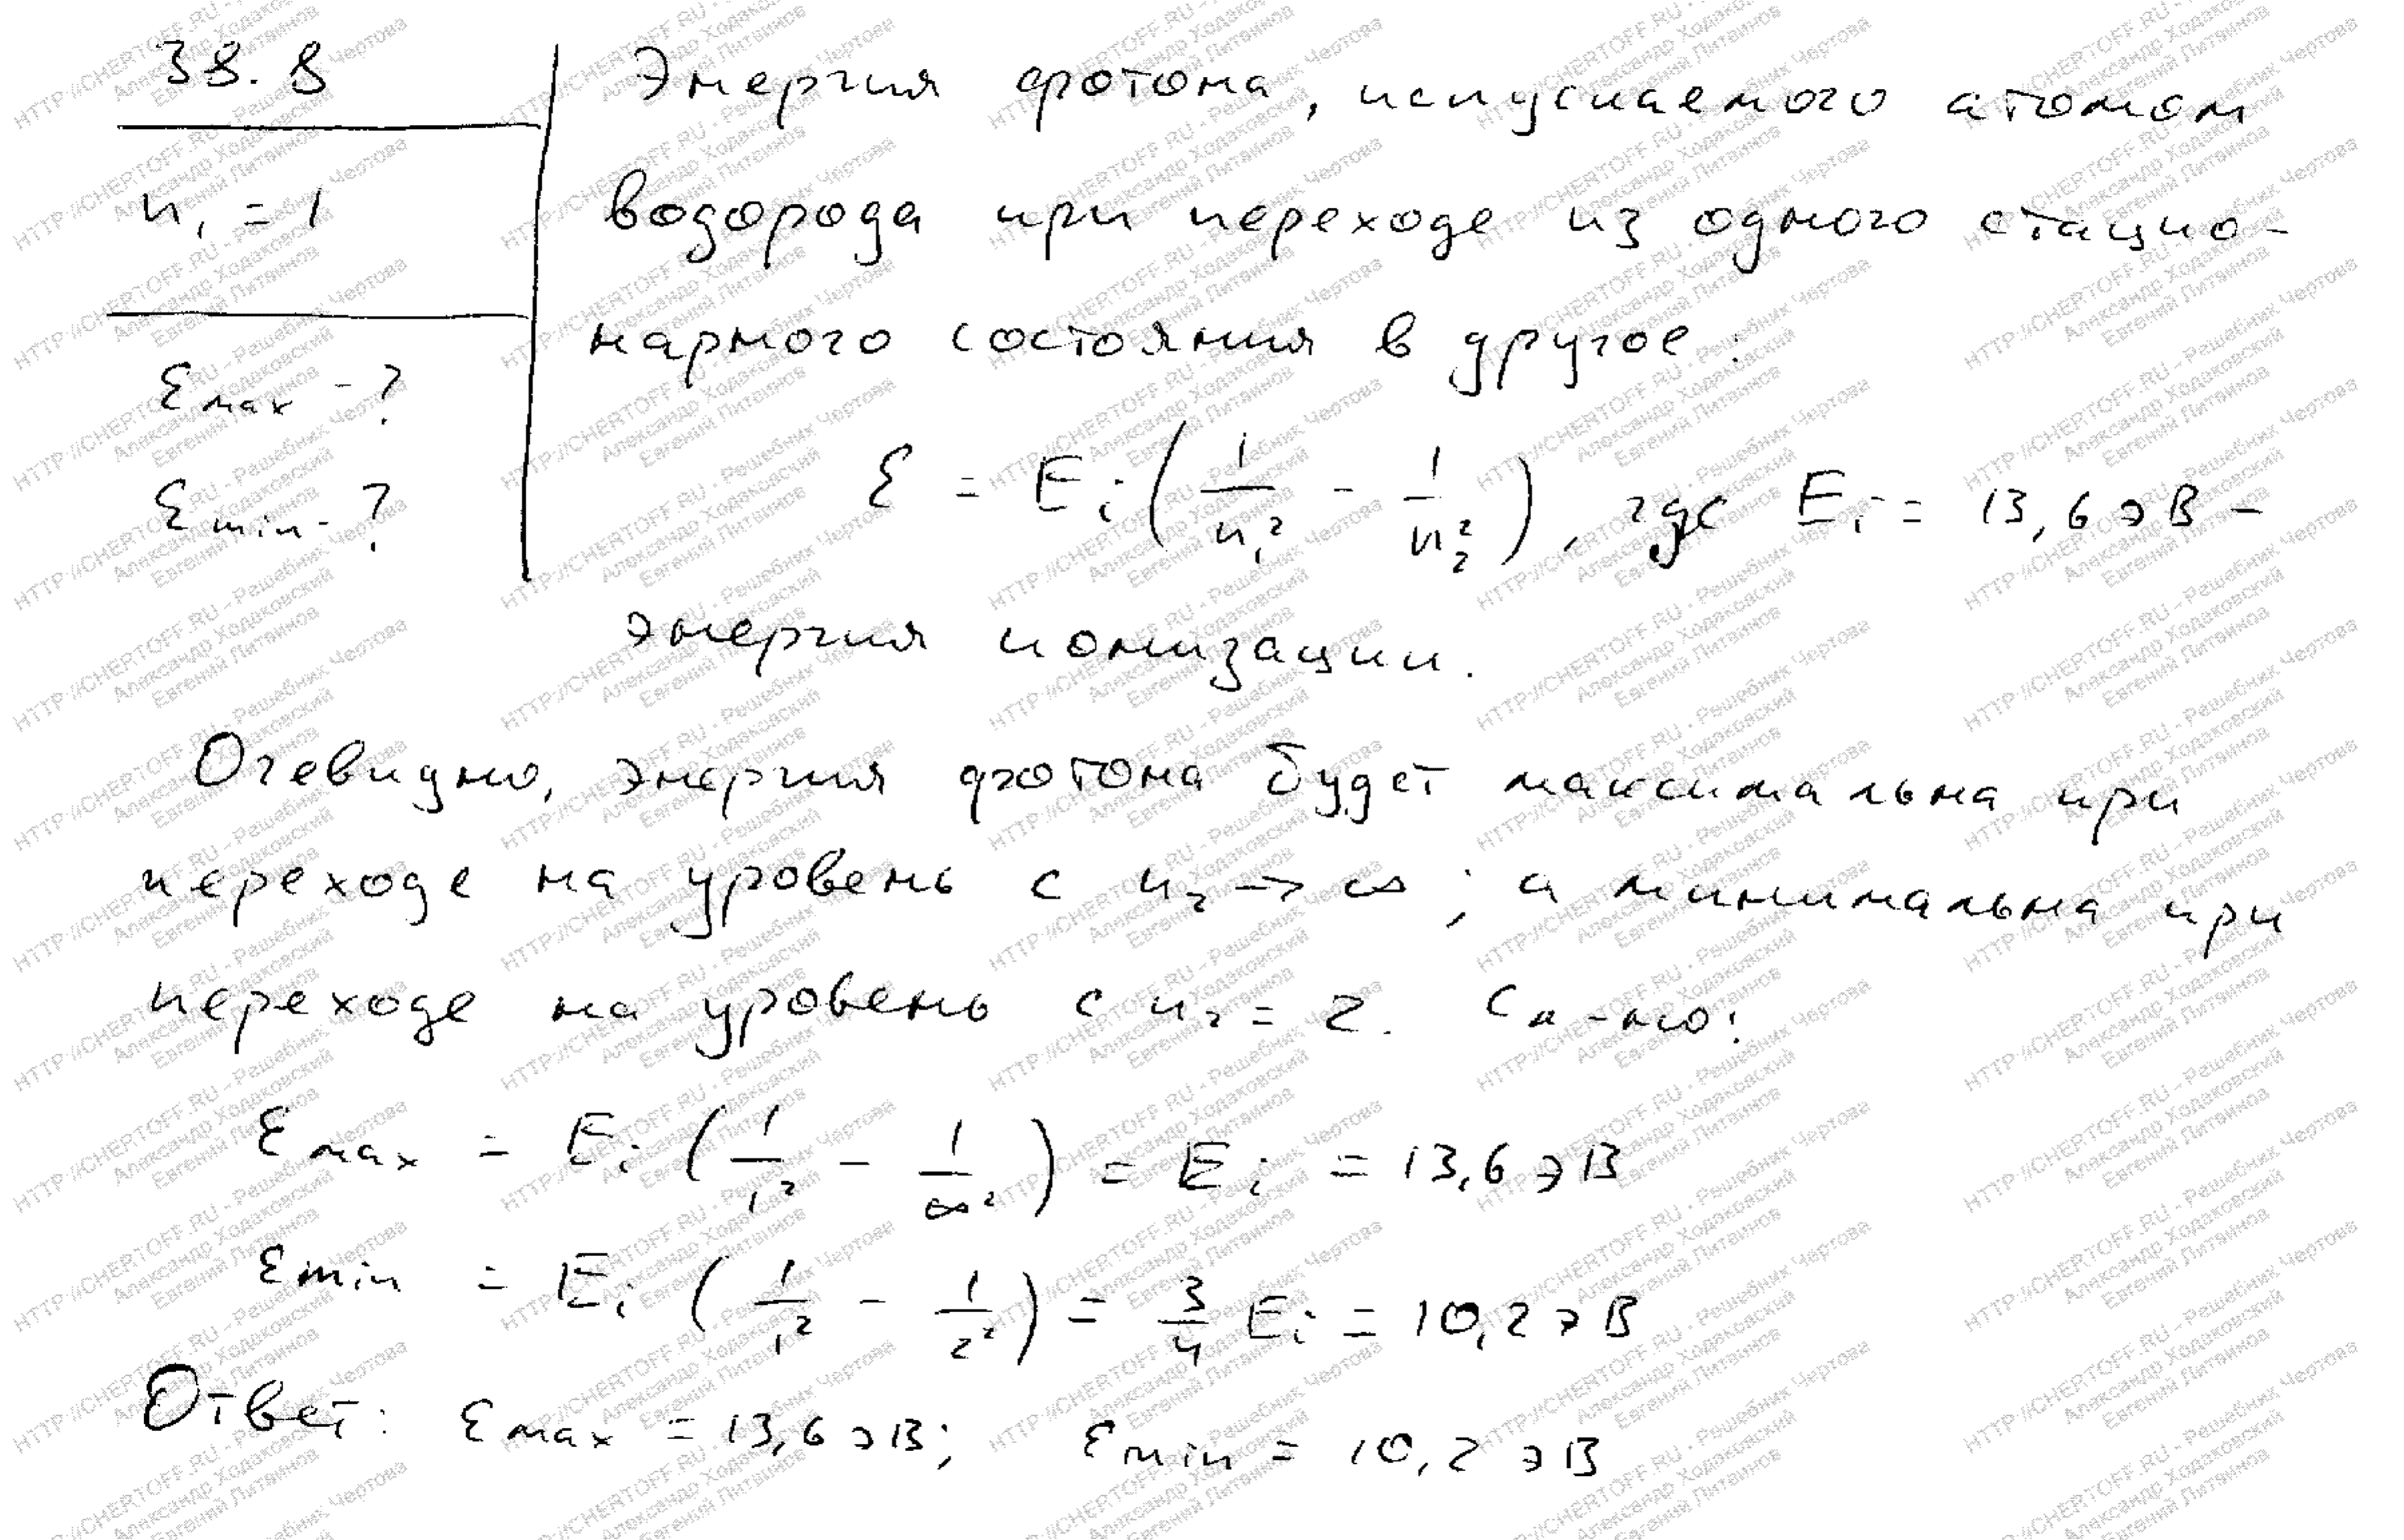 38.8
n₁ = 1
εmax - ?
εmin - ?
Энергия фотона, испускаемого атомом
водорода при переходе из одного стацио-
нарного состояния в другое:
ε = Ei(1/n₁² - 1/n₂²), где Ei = 13,6 эВ -
энергия ионизации.
Очевидно, энергия фотона будет максимальна при
переходе на уровень с n₂ → ∞; а минимальна при
переходе на уровень с n₂ = 2. Сл-но:
εmax = Ei (1/1² - 1/∞²) = Ei = 13,6 эВ
εmin = Ei (1/1² - 1/2²) = 3/4 Ei = 10,2 эВ
Ответ: εmax = 13,6 эВ; εmin = 10,2 эВ
HTTP://CHERTOFF.RU - Решебник Чертова
Александр Ходаковский
Евгений Литвинов